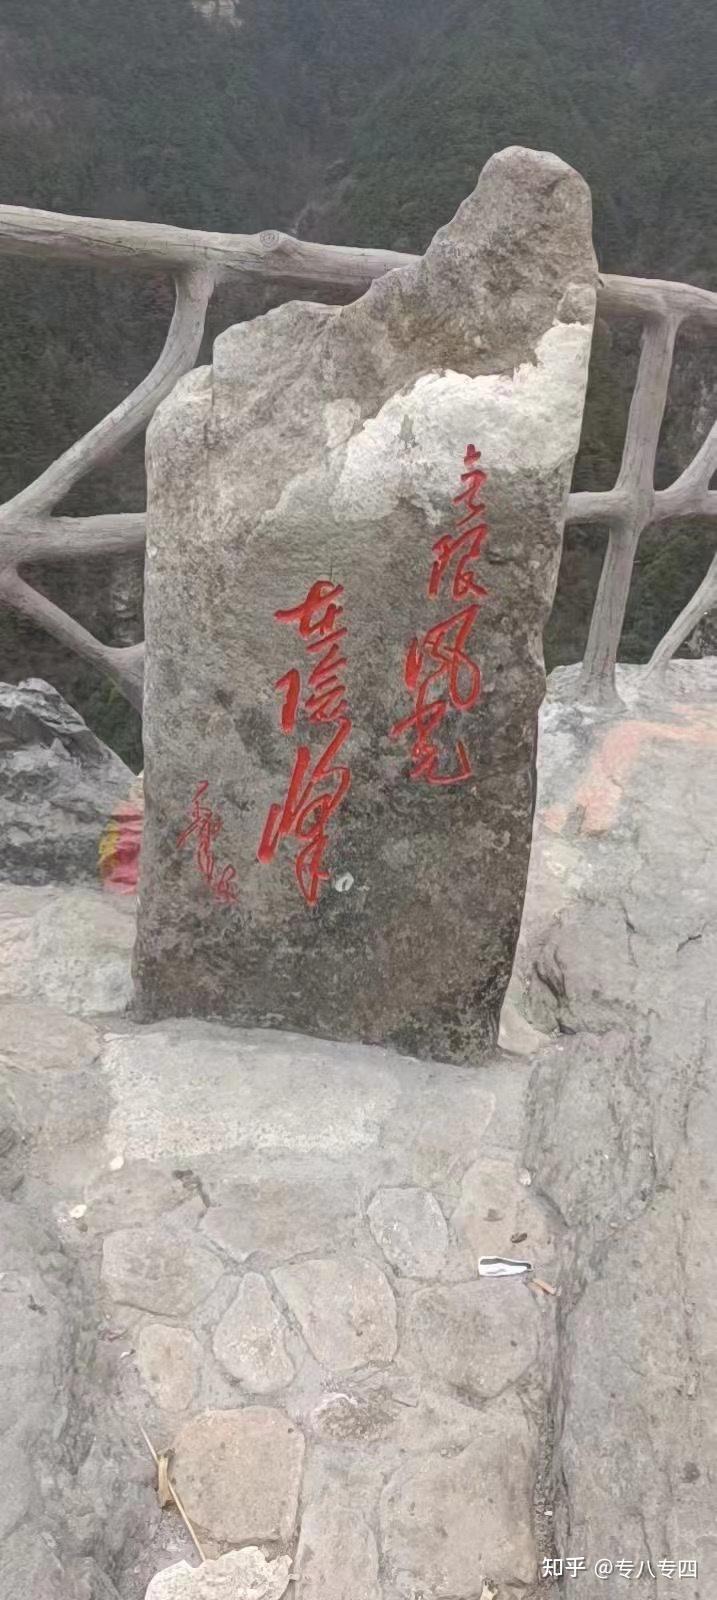 无限风光
在险峰
知乎 @专八专四